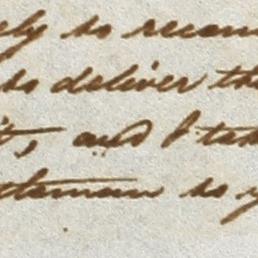 ely to recom
to deliver the
it, and I tak
tleman to y